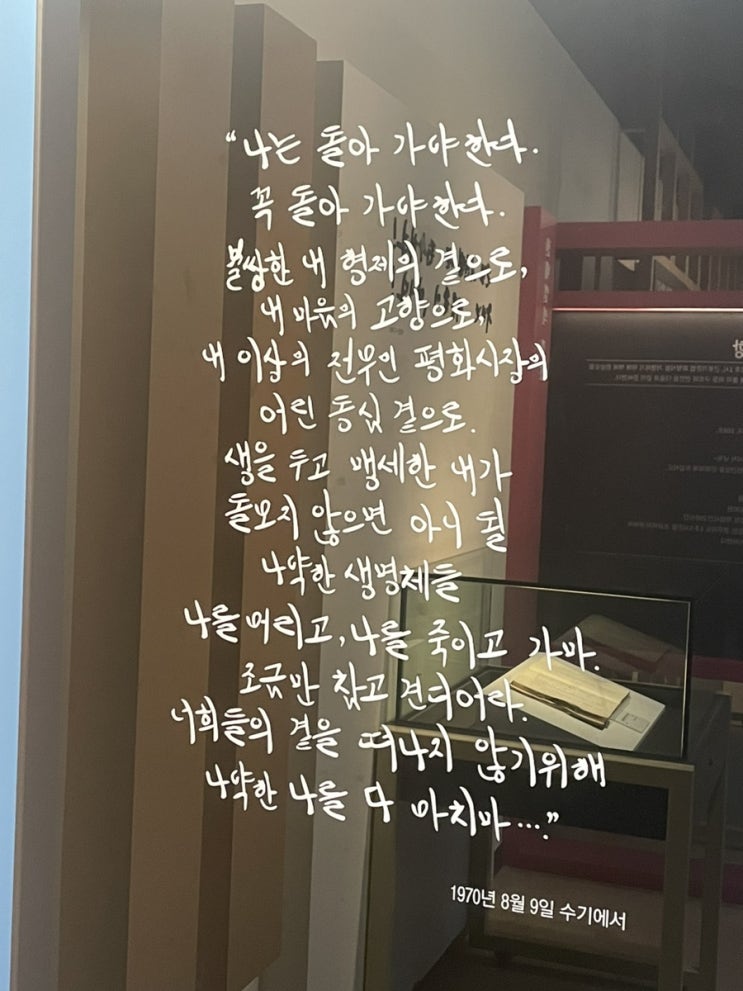 “나는 돌아 가야 한다.
꼭 돌아 가야 한다.
불쌍한 내 형제의 곁으로,
내 마음의 고향으로
내 이상의 전부인 평화시장의
어린 동심 곁으로.
생을 두고 맹세한 내가
돌보지 않으면 아니 될
나약한 생명체들
나를 버리고, 나를 죽이고 가마.
조금만 참고 견디어라.
너희들의 곁을 떠나지 않기위해
나약한 나를 다 바치마….”
1970년 8월 9일 수기에서